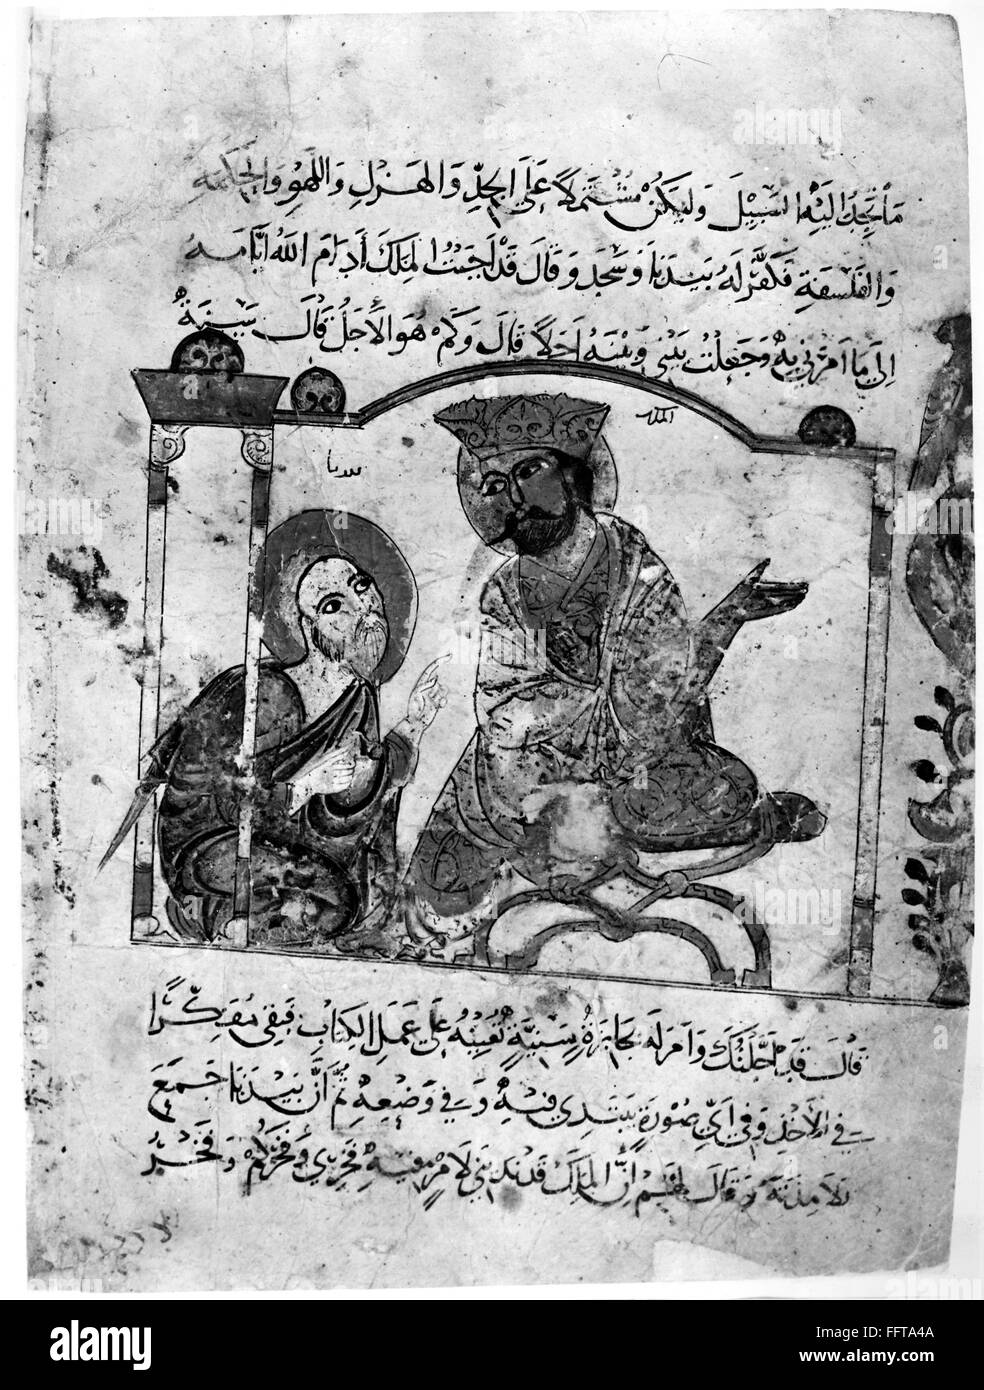 ما تجد اليه السبيل وليكن مشتملا على الجد والهزل واللهو والحكمه
والفلسفة فكفر له بيدبا وسجد وقال قد اجبت الملك أدام الله ايامه
الى ما امرني به وجعلت بيني وبينه اجلا قال وكم هو الأجل قال سنة
الملك
بيدبا
قال قد اجلتك وامر له بجايزة سنية تعينه على عمل الكتاب فبقي مفكرا
في الأخذ وفي اي صورة يبتدي فيه وفي وضعه ثم أن بيدبا جمع
تلامذته وقال لهم إن الملك قد ندبني لامر فيه فخري وفخركم وفخر
alamy
alamy
alamy
Image ID: FFTA4A
www.alamy.com